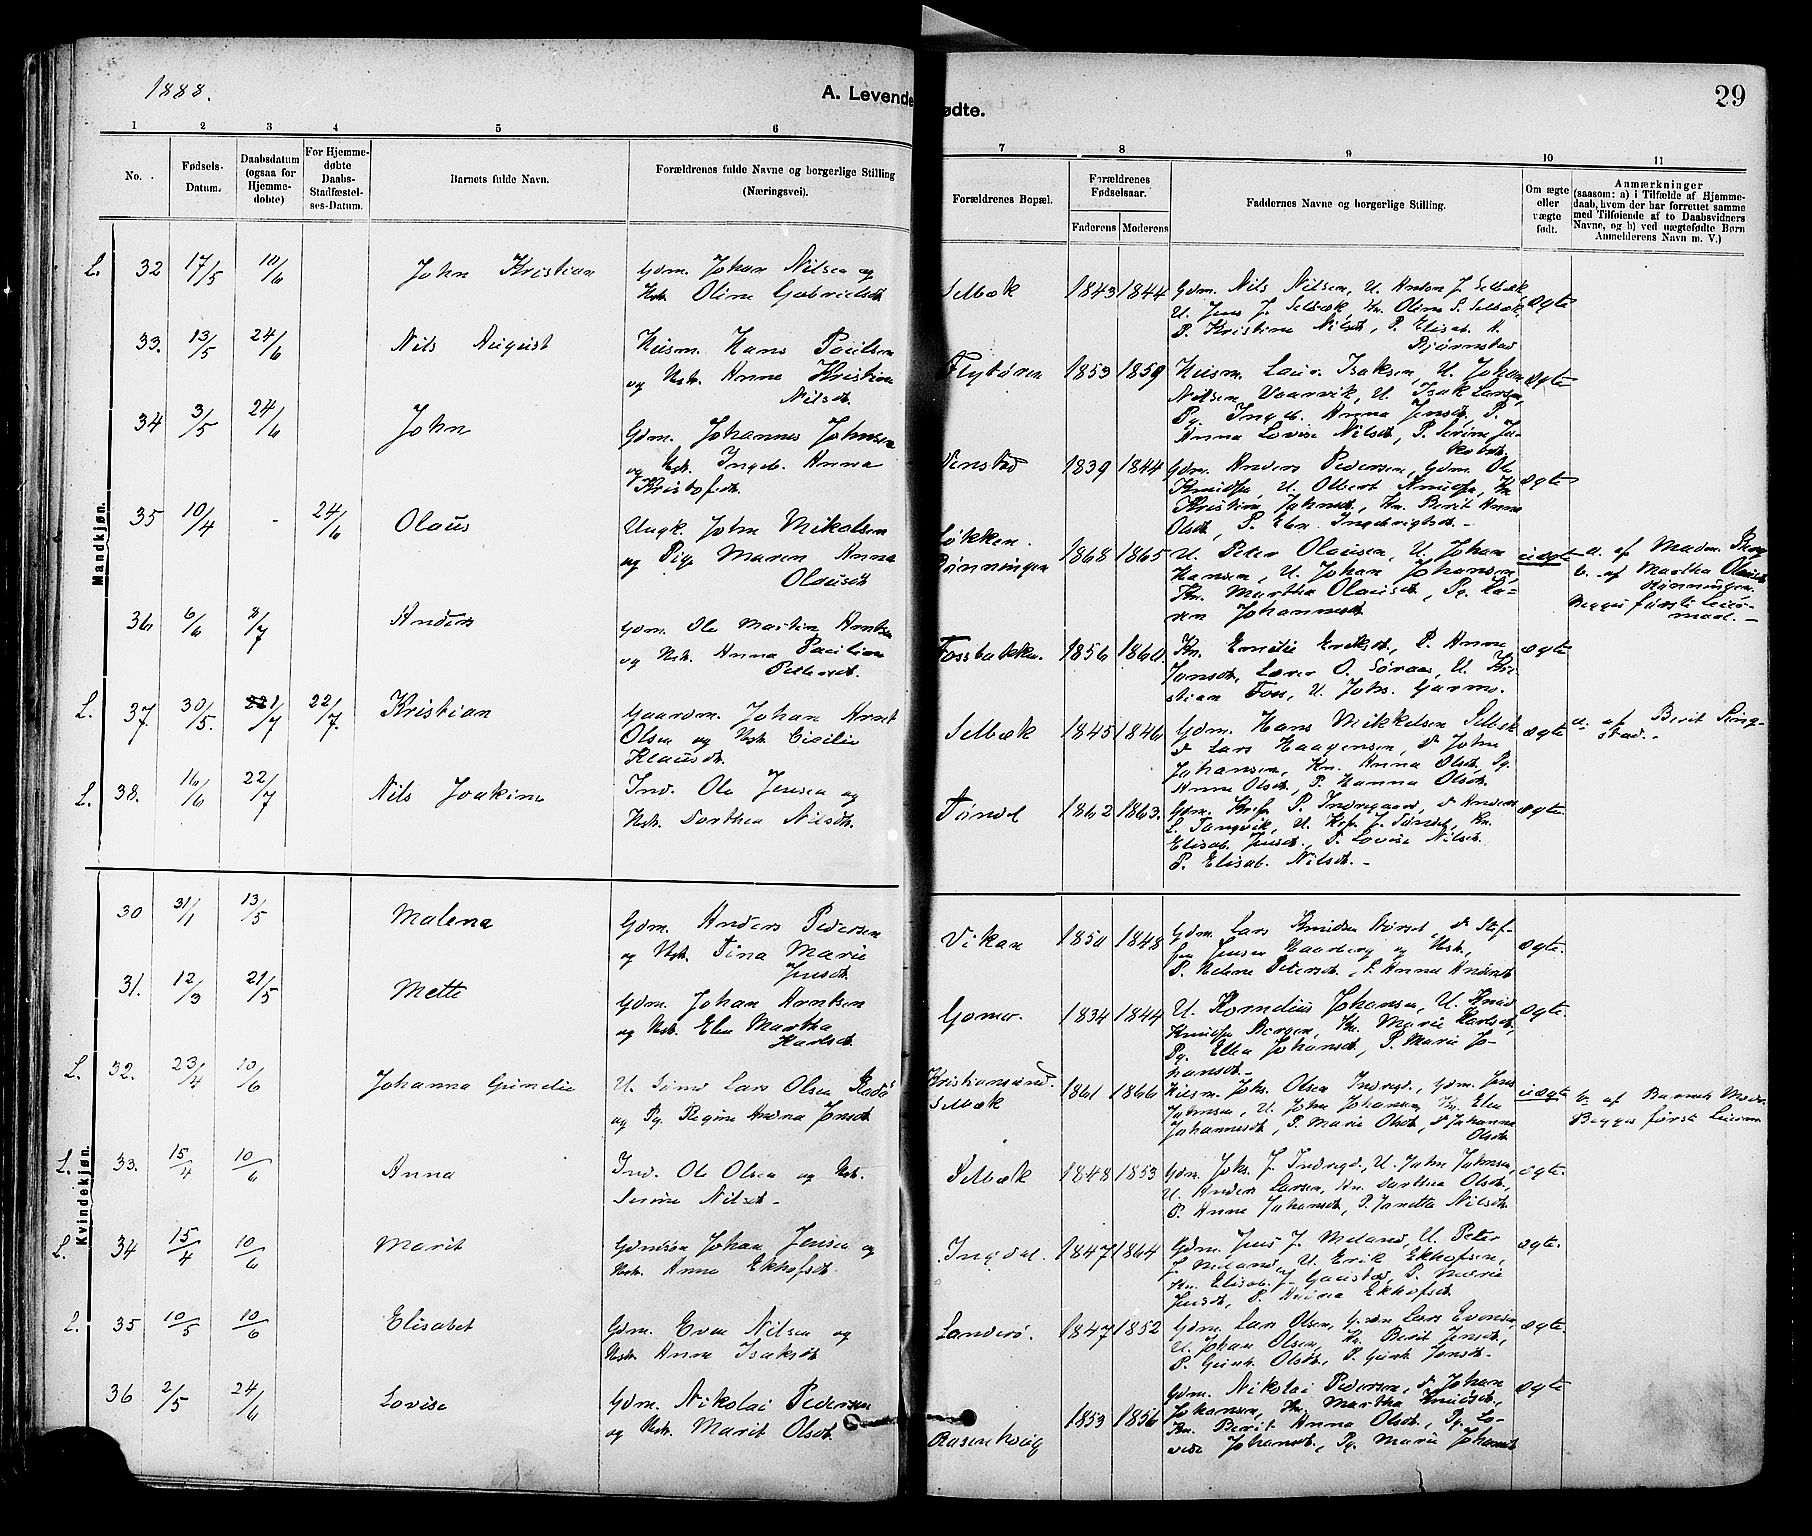 1888.
A. Levende
ødte.
29
1 2 3 4 5 6 7 8 9 10 11
No.
Fødsels-
Datum.
Daabsdatum
(ogsaa for
Hjemme-
døbte)
For Hjemme-
døbte
Daabs-
Stadfæstel-
ses-Datum.
Barnets fulde Navn.
Forældrenes fulde Navne og borgerlige Stilling
(Næringsvei).
Forældrenes Bopæl.
Forældrenes
Fødselsaar.
Faderens Moderens
Faddernes Navne og borgerlige Stilling.
Om ægte
eller
uægte
født.
Anmærkninger
(saasom: a) i Tilfælde af Hjemme-
daab, hvem der har forrettet samme
med Tilføiende af to Daabsvidners
Navne, og b) ved uægtefødte Børn
Anmelderens Navn m. V.)
Mandkjøn.
L. 32 17/5 10/6 John Kristian
Gdm. Johan Nilsen og
Hst. Oline Gabrielsdt.
Selbæk 1843 1844
Gdm. Nils Nilsen, U. Anton J. Selbæk
U. Jens J. Selbæk, Kn. Olina S. Selbæk,
P. Kristine Nilsdt, P. Elisab. A.
Bjørnstad
ægte
33. 13/5 24/6 Nils August
Husm. Hans Paulsen
og Hst. Anne Kristine
Nilsdt.
1853 1859
Husm. Laur. Isaksen, U. Johan
Nilsen Vaarvik, U. Isak Larsen,
Pg. Ingeb. Anna Jensdt. P.
Anna Lovise Nilsdt, P. Serine Ja-
kobsdt.
ægte
34 3/5 24/6 John
Gdm. Johannes Johnsen
og Hst. Ingeb. Anna
Kristofsdt.
Venstad 1839 1844
Gdm. Anders Pedersen, Gdm. Ole
Knudsen, U. Olbert Knudsen, Kn.
Kristine Johnsdt, Kn. Berit Anna
Olsdt, P. Elen Ingebrigtsdt. -
ægte
35 10/4 - 24/6 Olaus
Ungk. John Mikalsen
og Pige Maren Anna
Olausdt.
Løkken.
Rønningen
1868 1865
U. Peter Olausen, U. Johan
Hansen, U. Johan Johansen,
Kn. Martha Olausdt, Pg. Ka-
ren Johannesdt.
uægte
a. af Madm. Berg
b. af Martha Olausdt
Rønningen.
Begges første Leier-
maal. -
36 6/6 8/7 Anders
Gdm. Ole Martin Arntsen
og Hst. Anna Pauline
Pettersdt.
Fossbakken. 1856 1860
Kn. Emelie Eriksdt, P. Anne
Jonsdt, Lærer O. Søraas, U. Kri-
stian Foss, U. Johs. Garmo.
ægte
L. 37 30/5. 1/7 22/7. Kristian
Gaardm. Johan Arnt
Olsen og Hst. Cicilie
Klausdt.
Selbæk 1845 1846
Gdm. Hans Mikkelsen Selbæk
d. Lars Haagensen, d. John
Johansen, Kn. Anna Olsdt, Pg.
Anne Olsdt, P. Hanna Olsdt.
ægte
a. af Berit Sing-
stad. -
L. 38. 16/6 22/7 Nils Joakim
Ind. Ole Jensen og
Hst. Dorthea Nilsdt.
Tøndel 1862 1863.
Elisab. Jensdt., P. Lovise Nilsdt.
P. Elisab. Nilsdt. -
ægte.
Kvindekjøn.
30 31/1 13/5 Malena
Gdm. Anders Pedersen
og Hst. Tina Marie
Jensdt.
Vikan 1850 1848
Gdm. Lars Knudsen , d. Stef-
fen Jensen Haarberg og Hst.
P. Helene Petersdt, P. Anna Andersdt
ægte.
31. 12/3 21/5 Mette
Gdm. Johan Arntsen
og Hst. Elen Martha
Karlsdt.
1834 1844
U. Kornelius Johansen, U. Knud
Knudsen Bergen, Kn. Marie Karlsdt,
Pg. Ellen Johansdt, P. Marie Jo-
hansdt. -
ægte.
L. 32. 23/4 10/6 Johanna Gunelie
U. Tømd Lars Olsen
og Pg. Regine Andrea Jonsdt
Kristiansund.
Selbæk
1861 1866
Husm. Johs. Olsen Indrgd., Gdm. Jens
Johnsen, U. John Johansen, Kn. Elen
Johannesdt, P. Marie Olsdt, d. Johanna
Olsdt.
uægte
b. af Barnets Moder
Begges første Leierm
L. 33. 15/4 10/6 Anna
Ind. Ole Olsen og Hst.
Serine Nilsdt. -
Selbæk 1848 1853
Gdm. Johs. J. Indrgd, U. John Johnsen,
U. Anders Larsen, Kn. Dorthea Olsdt,
P. Anne Johansdt, P. Janetta Nilsdt
ægte.
L. 34 15/4 10/6 Marit
Gdmssøn Johan Jensen og
Hst. Anne Ekhofsdt.
Ingdal. 1847 1864
Gdm. Jens J. Meland, U. Peter
J. Meland, U. Erik Ekhofsen,
Kn. Elisab. J. Gaustad, P. Marie
Jensdt, P. Ekhofsdt.
ægte.
L. 35 10/5 10/6 Elisabet
Gdm. Even Nilsen og
Hst. Anne Isaksdt
Landrø. 1847 1852
Gdm. Lars Olsen, G.søn Lars Evensen
U. Johan Olsen, Kn. Berit Jensdt,
P. Gunh. Olsdt, P. Gunh. Jonsdt. -
ægte.
36 2/5 24/6 Lovise
Gdm. Nikolai Pedersen
og Hst. Marit Olsdt.
1853 1856
Gdm. Nikolai Pedersen, d. Johan
Johansen, Kn. Martha Knudsdt,
Kn. Berit Anna Olsdt, Pg. Lo-
vise Johansdt, Pg. Marie Johansdt
ægte